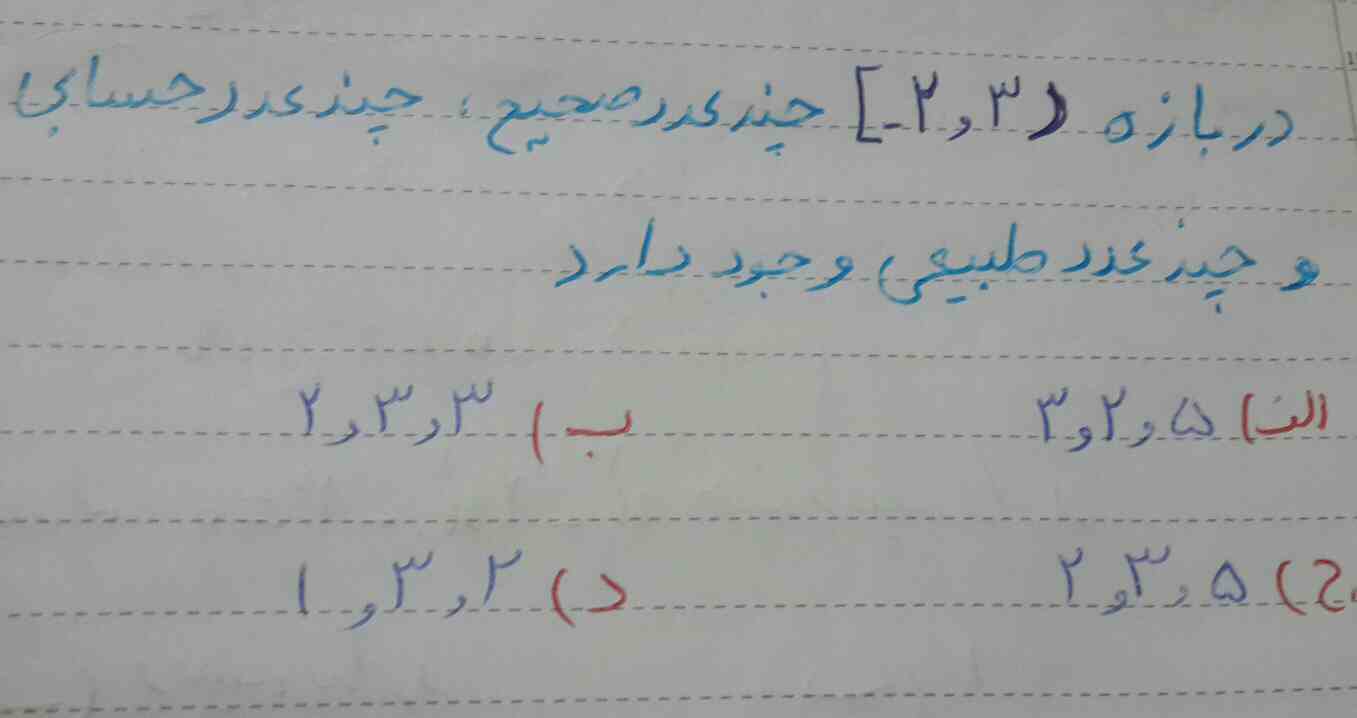 در بازه [-۲,۳) چند عدد صحیح، چند عدد حسابی
و چند عدد طبیعی وجود دارد
الف) ۵,۲,۳ ب) ۳,۳,۲
ج) ۵,۳,۲ د) ۲,۳,۱